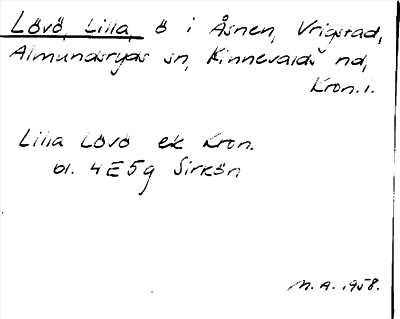 Lövö, Lilla, ö i Åsnen, Vrigstad,
Almundsryds sn, Kinnevalds hd,
Kron. l.
Lilla Lövö ek Kron.
bl. 4E5g Sirkön
M. A. 1958.